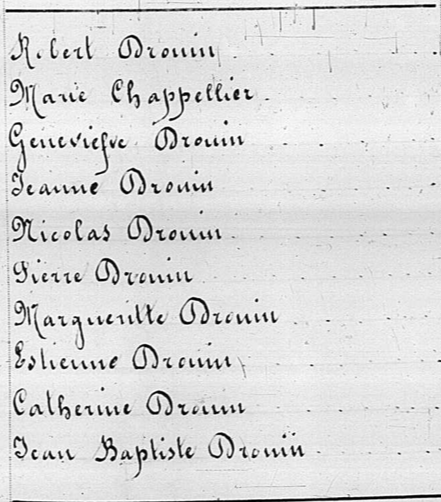 Robert Drouin
Marie Chappellier
Geneviefve Drouin
Jeanne Drouin
Nicolas Drouin
Pierre Drouin
Margueritte Drouin
Estienne Drouin
Catherine Drouin
Jean Baptiste Drouin